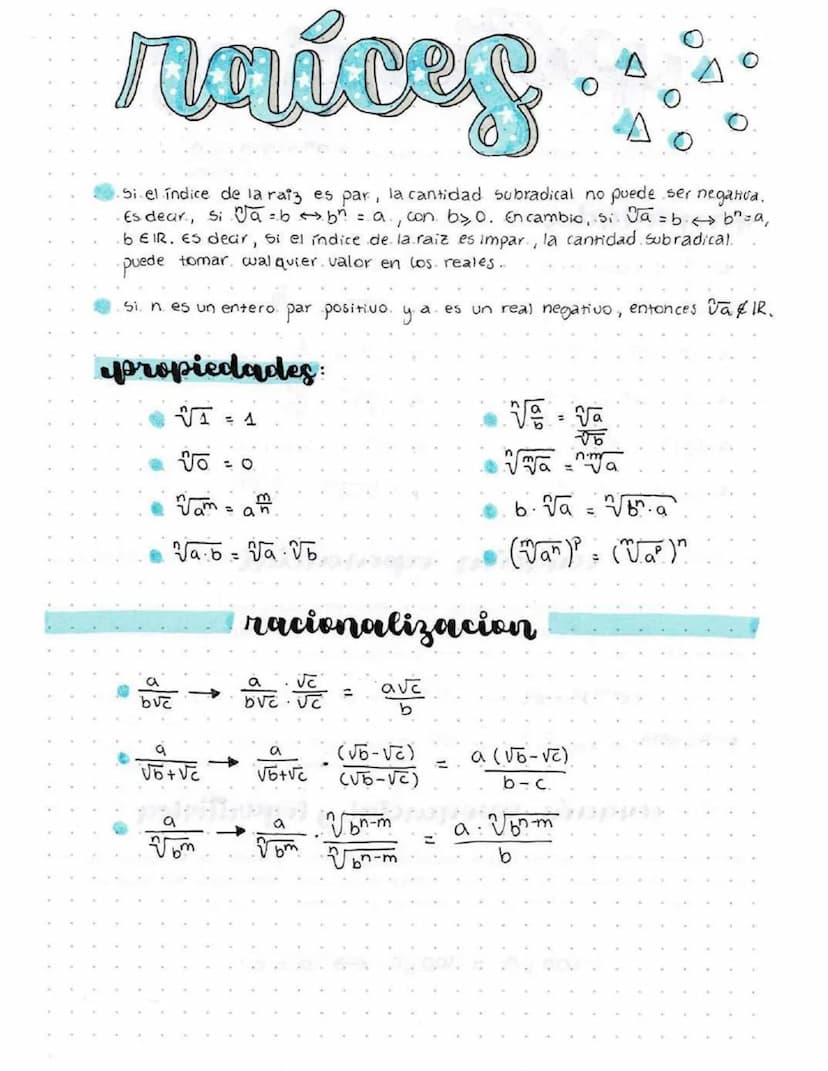 raíces
Si el índice de la raíz es par, la cantidad subradical no puede ser negativa.
Es decir, si ⁿ√a = b ↔ bⁿ = a, con b ≥ 0. En cambio, si ⁿ√a = b ↔ bⁿ = a,
b ∈ IR. Es decir, si el índice de la raíz es impar, la cantidad subradical
puede tomar cualquier valor en los reales.
Si n es un entero par positivo y a es un real negativo, entonces ⁿ√a ∉ IR.
propiedades:
ⁿ√1 = 1
ⁿ√0 = 0
ⁿ√(a^m) = a^(m/n)
ⁿ√(a·b) = ⁿ√a · ⁿ√b
ⁿ√(a/b) = ⁿ√a / ⁿ√b
ⁿ√(ᵐ√a) = ⁿ·ᵐ√a
b · ⁿ√a = ⁿ√(bⁿ · a)
(ᵐ√(aⁿ))^p = (ᵐ√(a^p))ⁿ
racionalizacion
a/(b√c) → a/(b√c) · √c/√c = a√c/b
a/(√b+√c) → a/(√b+√c) · (√b-√c)/(√b-√c) = a(√b-√c)/(b-c)
a/ⁿ√(b^m) → a/ⁿ√(b^m) · ⁿ√(b^(n-m))/ⁿ√(b^(n-m)) = a · ⁿ√(b^(n-m))/b